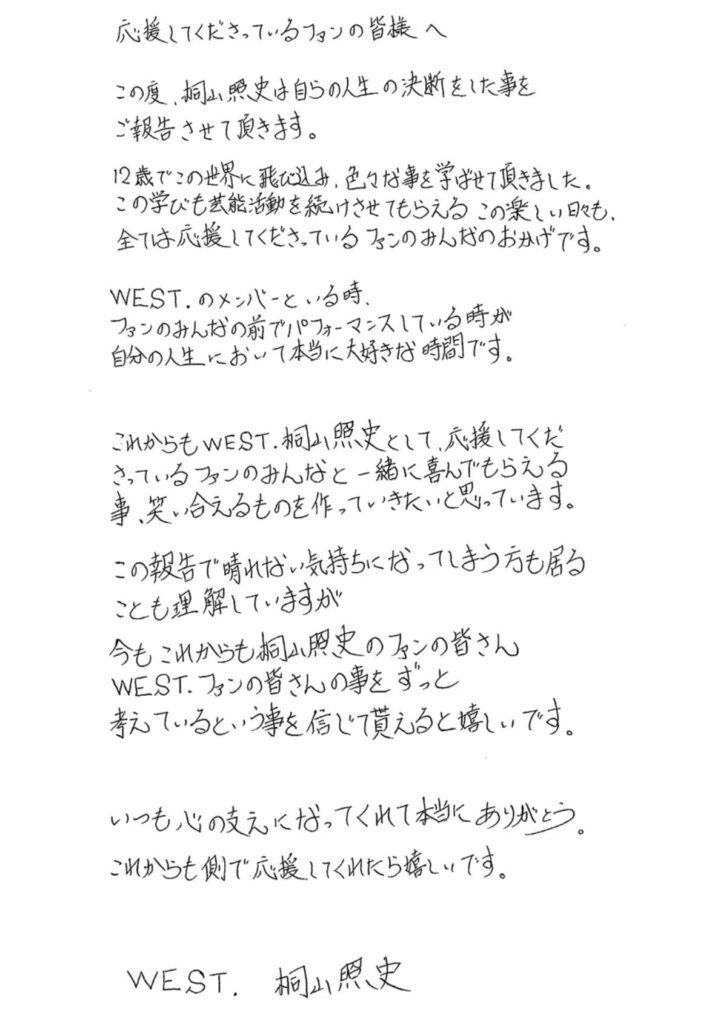 応援してくださっているファンの皆様へ
この度、桐山照史は自らの人生の決断をした事を
ご報告させて頂きます。
12歳でこの世界に飛び込み、色々な事を学ばせて頂きました。
この学びも芸能活動を続けさせてもらえるこの楽しい日々も、
全ては応援してくださっているファンのみんなのおかげです。
WEST.のメンバーといる時、
ファンのみんなの前でパフォーマンスしている時が
自分の人生において本当に大好きな時間です。
これからもWEST.桐山照史として、応援してくだ
さっているファンのみんなと一緒に喜んでもらえる
事、笑い合えるものを作っていきたいと思っています。
この報告で晴れない気持ちになってしまう方も居る
ことも理解していますが
今もこれからも桐山照史のファンの皆さん
WEST.ファンの皆さんの事をずっと
考えているという事を信じて貰えると嬉しいです。
いつも心の支えになってくれて本当にありがとう。
これからも側で応援してくれたら嬉しいです。
WEST. 桐山照史